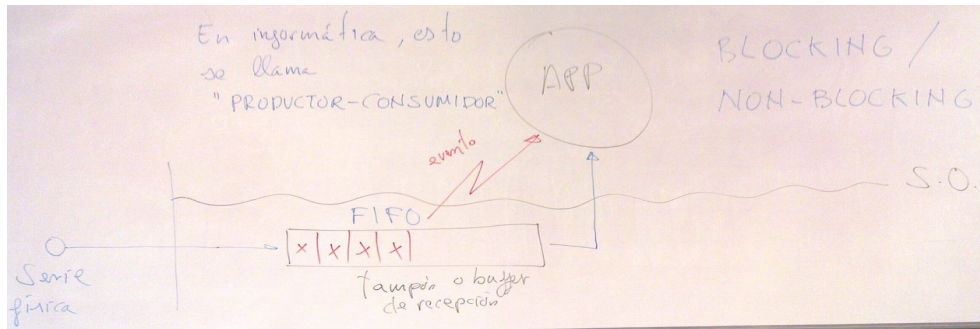 En informática, esto
se llama
"PRODUCTOR-CONSUMIDOR"
APP
BLOCKING /
NON-BLOCKING
evento
S.O.
FIFO
x x x x
Serie
física
tampón o buffer
de recepción